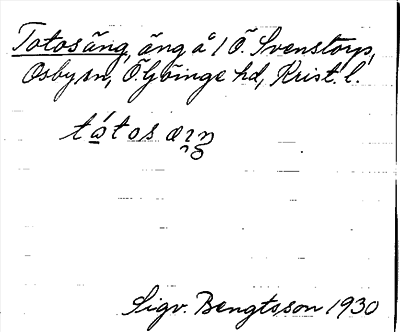 Totosäng, äng å 1 Ö. Svenstorp,
Osby sn, Ö. Göinge hd, Krist. l.
tátos
Sigv. Bengtsson 1930